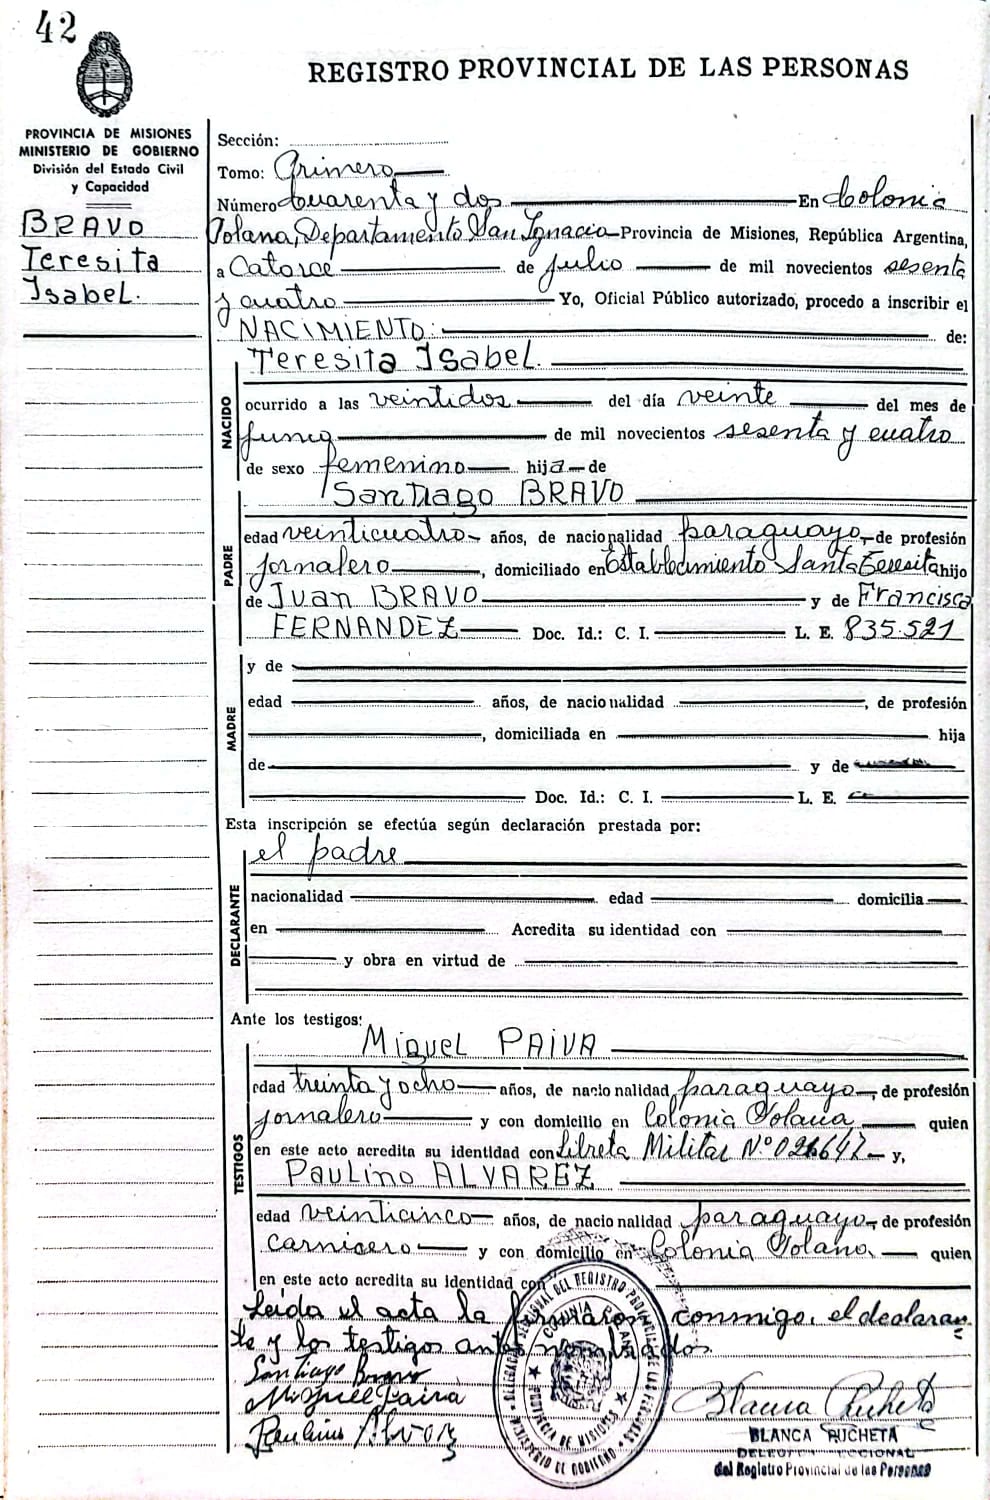 42
REGISTRO PROVINCIAL DE LAS PERSONAS
PROVINCIA DE MISIONES
MINISTERIO DE GOBIERNO
División del Estado Civil
y Capacidad
BRAVO
Teresita
Isabel.
Sección:
Tomo: Primero
Número Cuarenta y dos En Colonia
Polana, Departamento San Ignacio Provincia de Misiones, República Argentina,
a Catorce de julio de mil novecientos sesenta
y cuatro Yo, Oficial Público autorizado, procedo a inscribir el
NACIMIENTO: de:
Teresita Isabel.
NACIDO
ocurrido a las veintidos del día veinte del mes de
junio de mil novecientos sesenta y cuatro
de sexo femenino hija de
Santiago BRAVO
PADRE
edad veinticuatro años, de nacionalidad paraguayo, de profesión
jornalero, domiciliado en Establecimiento Santa Teresita hijo
de Juan BRAVO y de Francisca
FERNANDEZ Doc. Id.: C. I. L. E. 835.521
MADRE
y de
edad años, de nacionalidad , de profesión
, domiciliada en hija
de y de
Doc. Id.: C. I. L. E.
Esta inscripción se efectúa según declaración prestada por:
el padre
DECLARANTE
nacionalidad edad domicilia
en Acredita su identidad con
y obra en virtud de
Ante los testigos:
Miguel PAIVA
TESTIGOS
edad treinta y ocho años, de nacionalidad paraguayo, de profesión
jornalero y con domicilio en Colonia Polana, quien
en este acto acredita su identidad con Libreta Militar N.º y,
Paulino ALVAREZ
edad veinticinco años, de nacionalidad paraguayo, de profesión
carnicero y con domicilio en Colonia Polana, quien
en este acto acredita su identidad con
Leída el acta la firmaron conmigo, el declaran
te y los testigos antes nombrados.
Santiago Bravo
Miguel Paiva
Paulino Alvarez
Blanca Rucheta
BLANCA RUCHETA
DELEGADA SECCIONAL
del Registro Provincial de las Personas
DELEGACION SECCIONAL DEL REGISTRO PROVINCIAL DE LAS PERSONAS
MINISTERIO DE GOBIERNO
COLONIA POLANA
PROVINCIA DE MISIONES